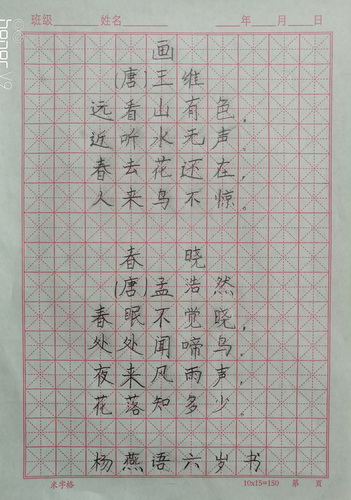 班级 姓名 年 月 日
画
(唐)王维
远看山有色,
近听水无声。
春去花还在,
人来鸟不惊。
春晓
(唐)孟浩然
春眠不觉晓,
处处闻啼鸟。
夜来风雨声,
花落知多少。
杨燕语六岁书
米字格 10x15=150 第 页
honor V9